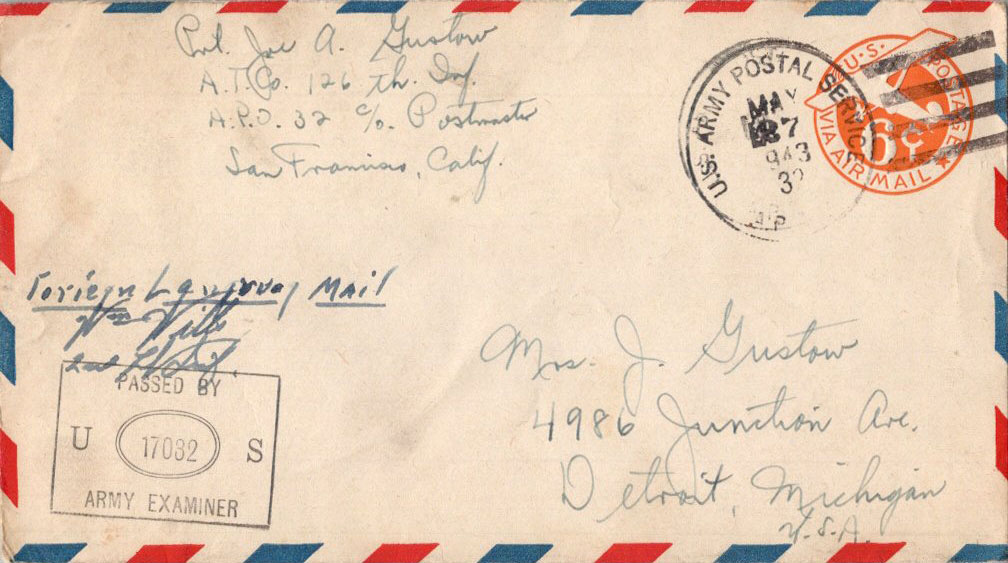 Pvt. Joe A. Gustow
A.T. Co. 126 th. Inf.
A.P.O. 32 c/o Postmaster
San Francisco, Calif.
U.S. ARMY POSTAL SERVICE
MAY
943
32
A.P.
U.S. POSTAGE
6¢
VIA AIR MAIL
Foriegn Language MAil
PASSED BY
U 17032 S
ARMY EXAMINER
Mrs. J. Gustow
4986 Junction Ave.
Detroit, Michigan
U.S.A.